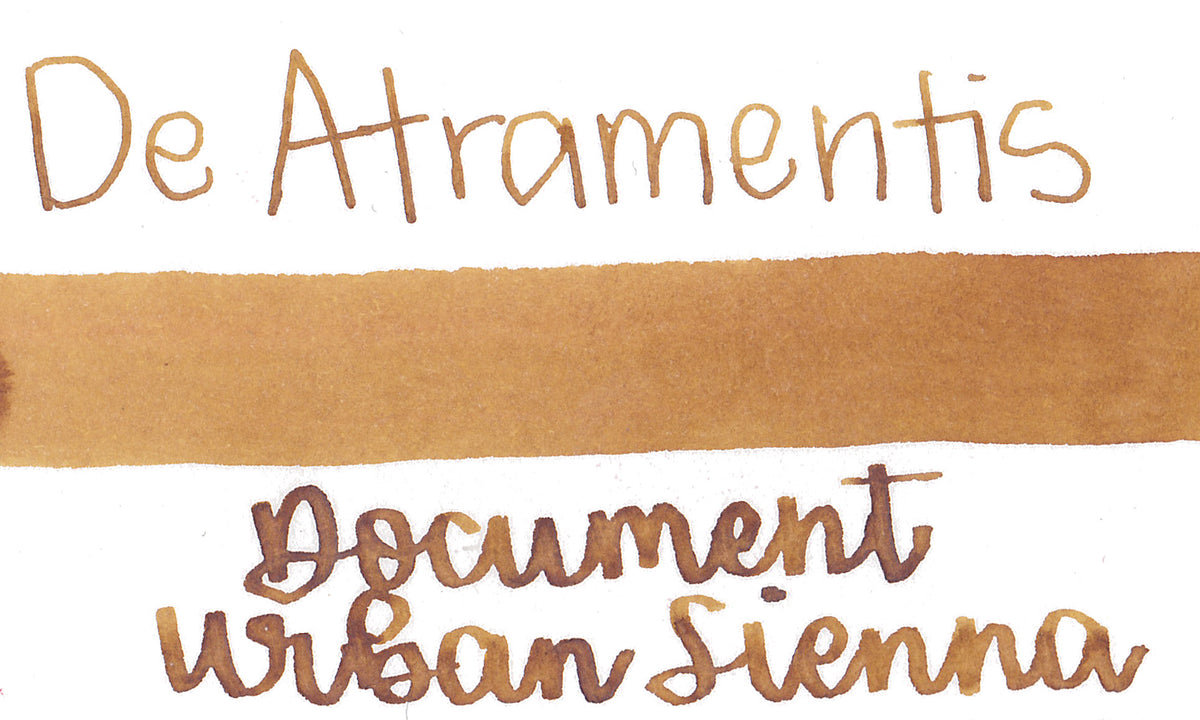 De Atramentis
Document
Urban Sienna